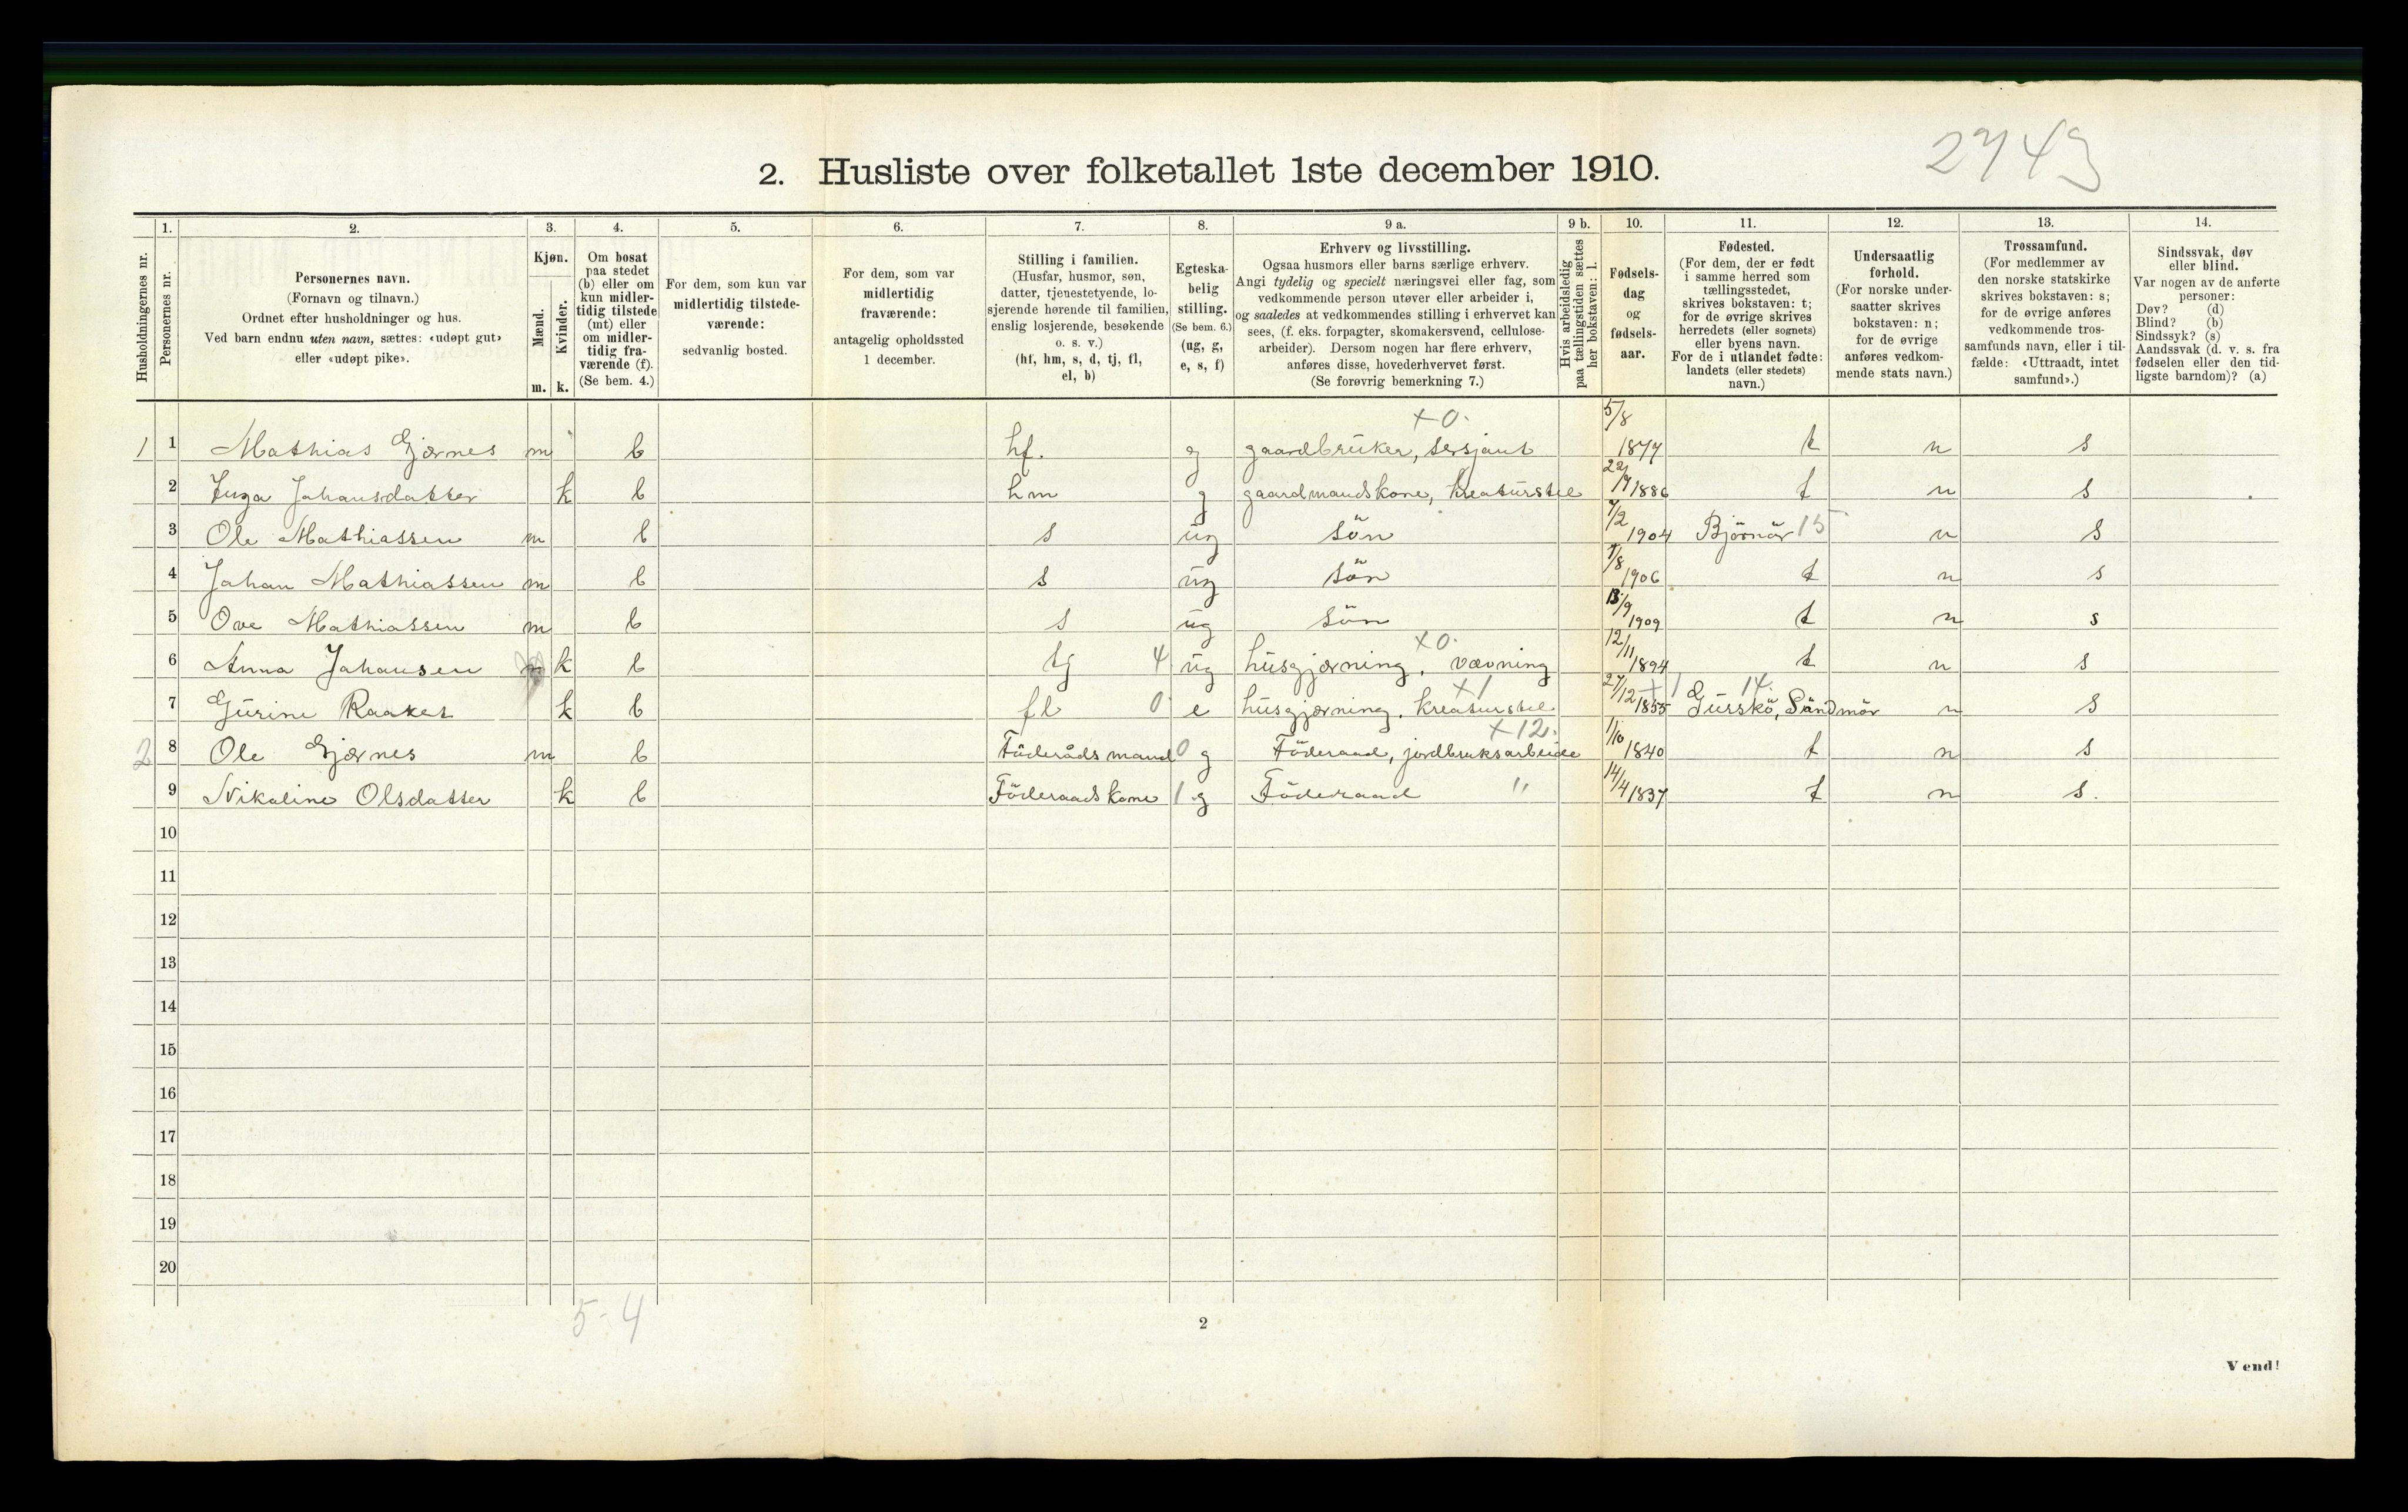 2743
2. Husliste over folketallet 1ste december 1910.
Husholdningernes nr.
1.
Personernes nr.
2.
Personernes navn.
(Fornavn og tilnavn.)
Ordnet efter husholdninger og hus.
Ved barn endnu uten navn, sættes: «udøpt gut»
eller «udøpt pike».
3.
Kjøn.
Mænd.
Kvinder.
m. k.
4.
Om bosat
paa stedet
(b) eller om
kun midler-
tidig tilstede
(mt) eller
om midler-
tidig fra-
værende (f).
(Se bem. 4.)
5.
For dem, som kun var
midlertidig tilstede-
værende:
sedvanlig bosted.
6.
For dem, som var
midlertidig
fraværende:
antagelig opholdssted
1 december.
7.
Stilling i familien.
(Husfar, husmor, søn,
datter, tjenestetyende, lo-
sjerende hørende til familien,
enslig losjerende, besøkende
o. s. v.)
(hf, hm, s, d, tj, fl,
el, b)
8.
Egteska-
belig
stilling.
(Se bem. 6.)
(ug, g,
e, s, f)
9 a.
Erhverv og livsstilling.
Ogsaa husmors eller barns særlige erhverv.
Angi tydelig og specielt næringsvei eller fag, som
vedkommende person utøver eller arbeider i,
og saaledes at vedkommendes stilling i erhvervet kan
sees, (f. eks. forpagter, skomakersvend, cellulose-
arbeider). Dersom nogen har flere erhverv,
anføres disse, hovederhvervet først.
(Se forøvrig bemerkning 7.)
9 b.
Hvis arbeidsledig
paa tællingstiden sættes
her bokstaven: l.
10.
Fødsels-
dag
og
fødsels-
aar.
11.
Fødested.
(For dem, der er født
i samme herred som
tællingsstedet,
skrives bokstaven: t;
for de øvrige skrives
herredets (eller sognets)
eller byens navn.
For de i utlandet fødte:
landets (eller stedets)
navn.)
12.
Undersaatlig
forhold.
(For norske under-
saatter skrives
bokstaven: n;
for de øvrige
anføres vedkom-
mende stats navn.)
13.
Trossamfund.
(For medlemmer av
den norske statskirke
skrives bokstaven: s;
for de øvrige anføres
vedkommende tros-
samfunds navn, eller i til-
fælde: «Uttraadt, intet
samfund».)
14.
Sindssvak, døv
eller blind.
Var nogen av de anførte
personer:
Døv? (d)
Blind? (b)
Sindssyk? (s)
Aandssvak (d. v. s. fra
fødselen eller den tid-
ligste barndom)? (a)
x 0.
1 1 Mathias Gjærnes m b hf. g gaardbruker, sersjant 5/8 1877 t n s
2 Inga Johansdatter k b hm g gaardmandskone, kreaturstel 1886 t n s
3 Ole Mathiassen m b s ug sön 7/2 1904 Björnör 15 n s
4 Johan Mathiassen m b s ug sön 1/8 1906 t n s
5 Ove Mathiassen m b s ug sön 13/9 1909 t n s
x 0.
6 Anna Johansen k b tj 4 ug husgjærning, vævning 12/11 1894 t n s
x 1 x 1 14.
7 Gurine Raaket k b fl 0 e husgjærning, kreaturstel 27/12 1855 Gurskö, Söndmör n s
x 12.
2 8 Ole Gjærnes m b Föderåds mand 0 g Föderaad, jordbruksarbeide 1/10 1840 t n s
9 Nikoline Olsdatter k b Föderaads kone 1 g Föderaad " 14/4 1837 t n s.
10
11
12
13
14
15
16
17
18
19
20
5-4
2
Vend!